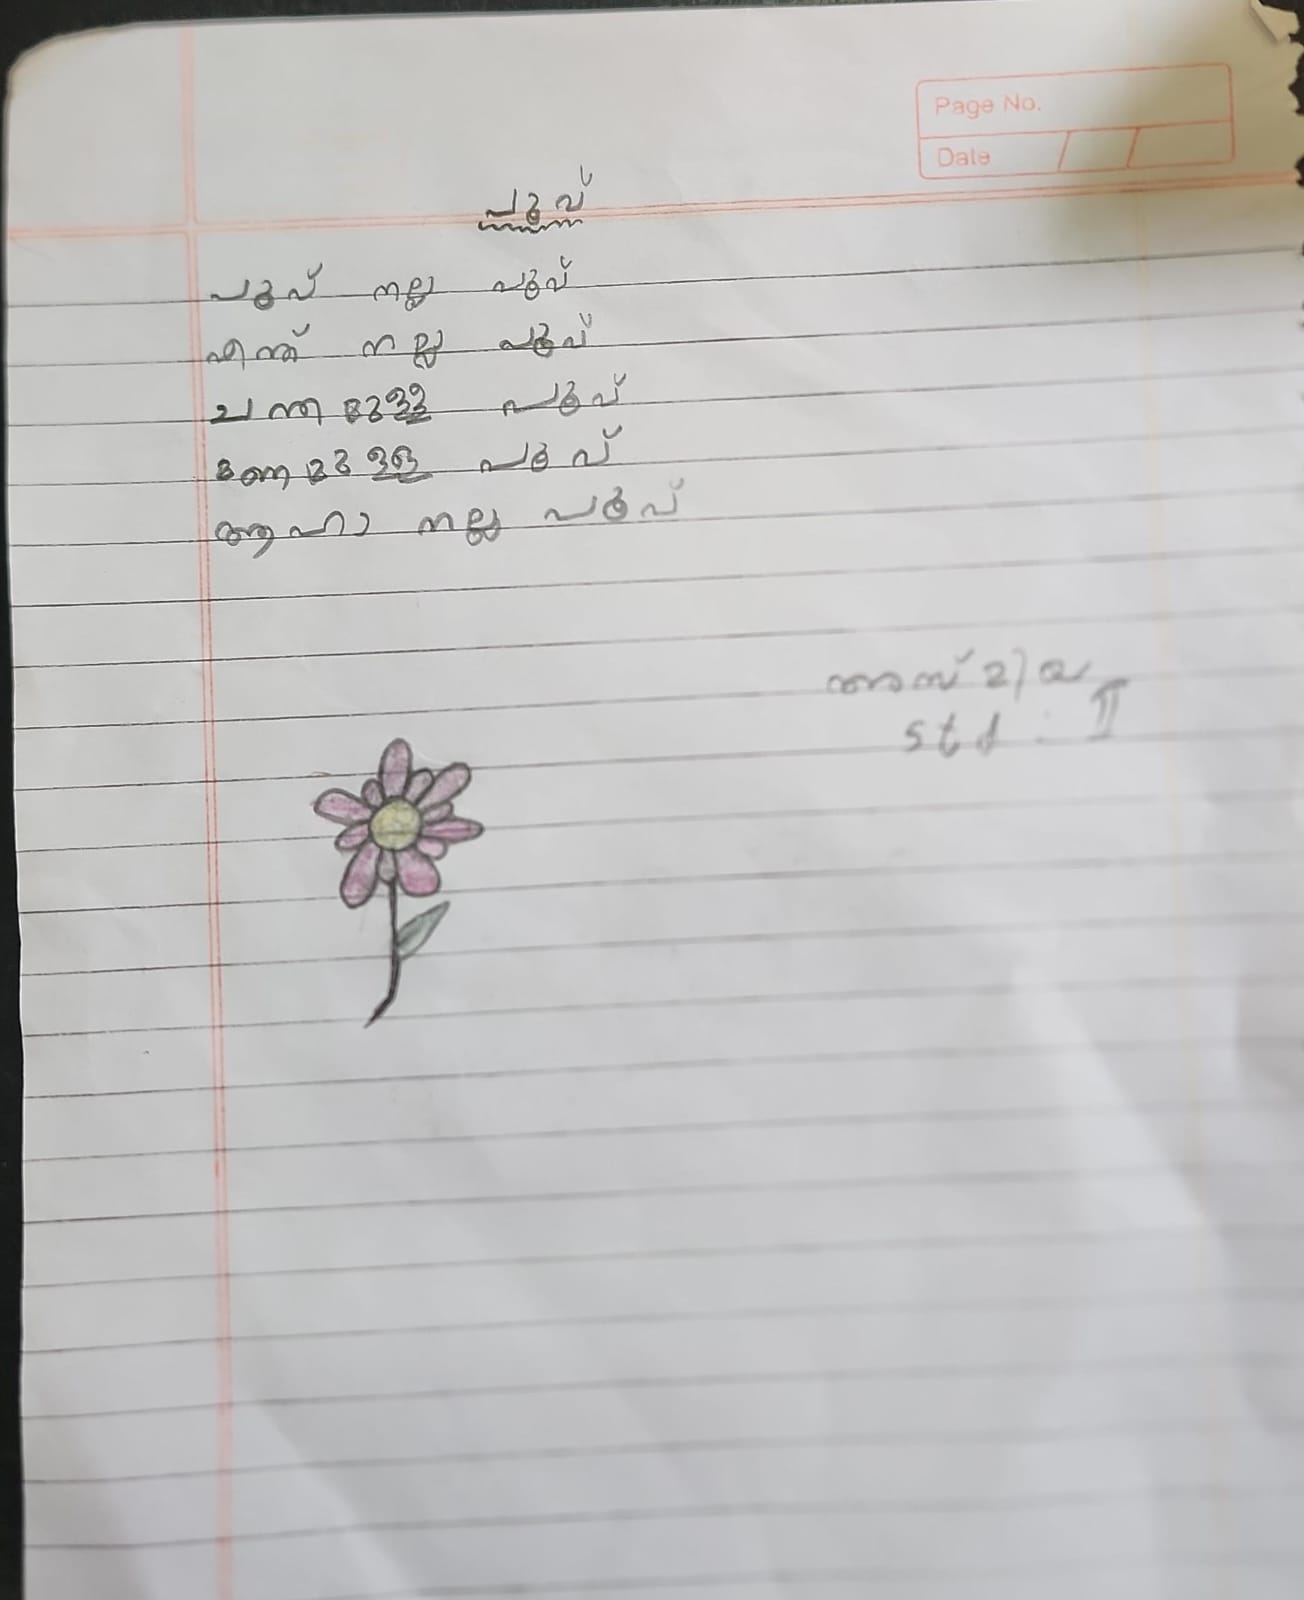 Page No.
Date
പൂവ്
പൂവ് നല്ല പൂവ്
എന്ത് നല്ല പൂവ്
ചന്തമുള്ള പൂവ്
മണമുള്ള പൂവ്
ആഹാ നല്ല പൂവ്
std : II